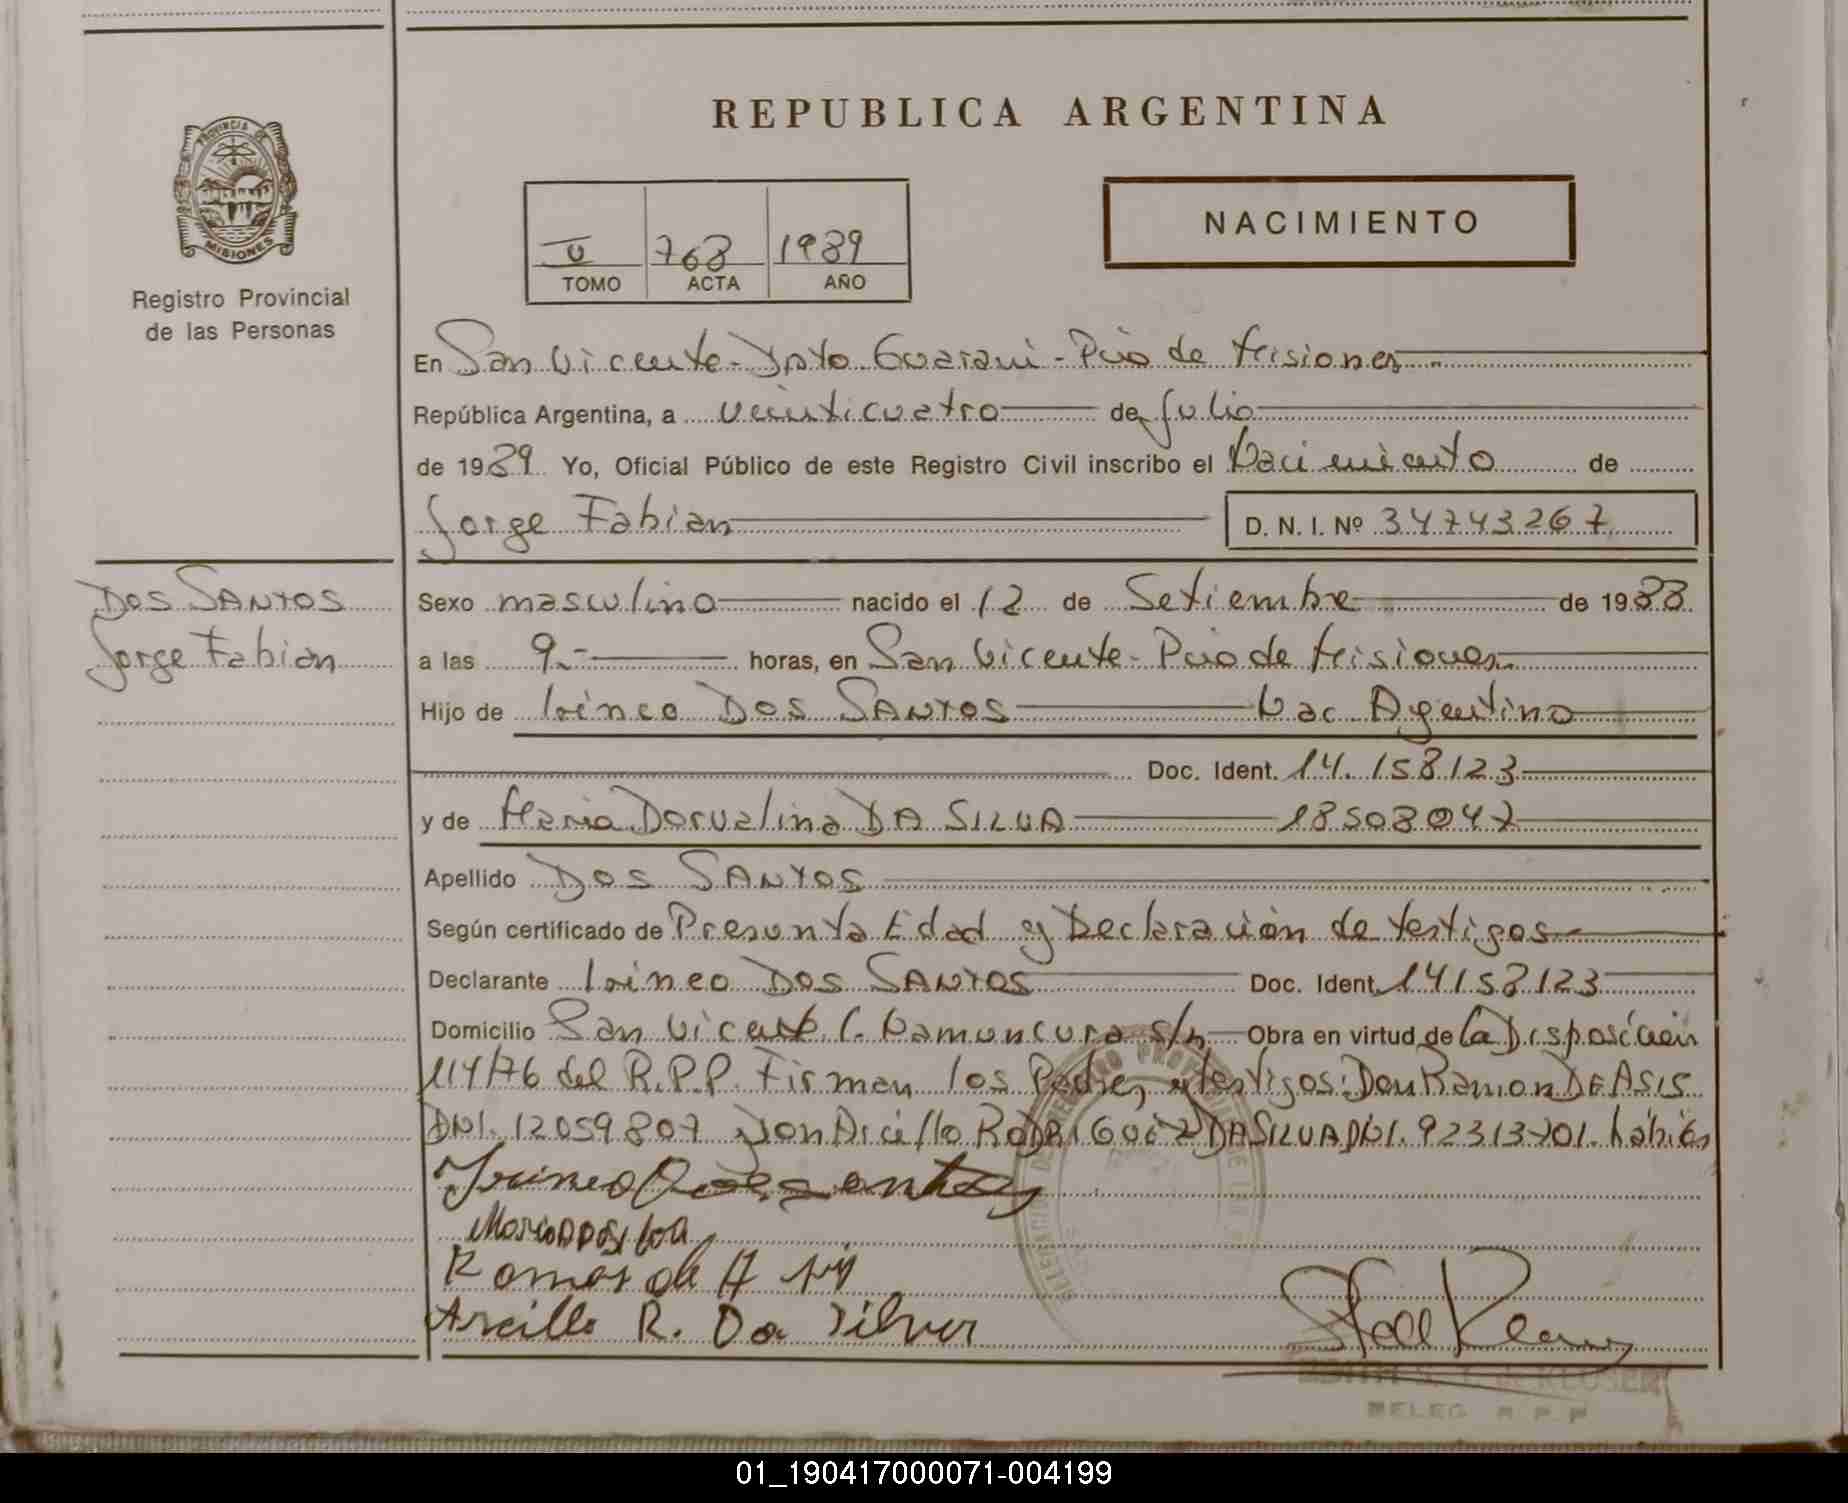 REPUBLICA ARGENTINA
NACIMIENTO
PROVINCIA DE
MISIONES
Registro Provincial
de las Personas
768 1989
TOMO ACTA AÑO
En San Vicente - Dpto Guarani - Pcia de Misiones
República Argentina, a veinticuatro de Julio
de 1989 Yo, Oficial Público de este Registro Civil inscribo el Nacimiento de
Jorge Fabian D. N. I. Nº 34743267
DOS SANTOS
Jorge Fabian
Sexo masculino nacido el 12 de Setiembre de 1988
a las 9.- horas, en San Vicente - Pcia de Misiones
Hijo de Irineo DOS SANTOS Nac Argentino
Doc. Ident. 14.158123
y de Maria Dorvalina DA SILVA 18508047
Apellido DOS SANTOS
Según certificado de Presunta Edad y Declaración de testigos
Declarante Irineo DOS SANTOS Doc. Ident. 14158123
Domicilio San Vicente C. Namuncura s/n Obra en virtud de la Disposición
114/76 del R.P.P. Firman los Padres y testigos: Don Ramon DE ASIS
DNI. 12059807 y Don Arcillo RODRIGUEZ DA SILVA DNI. 92313701. hábiles
Irineo Dos santos
Arcillo R. Da Silver
DELEG R P P
01_190417000071-004199